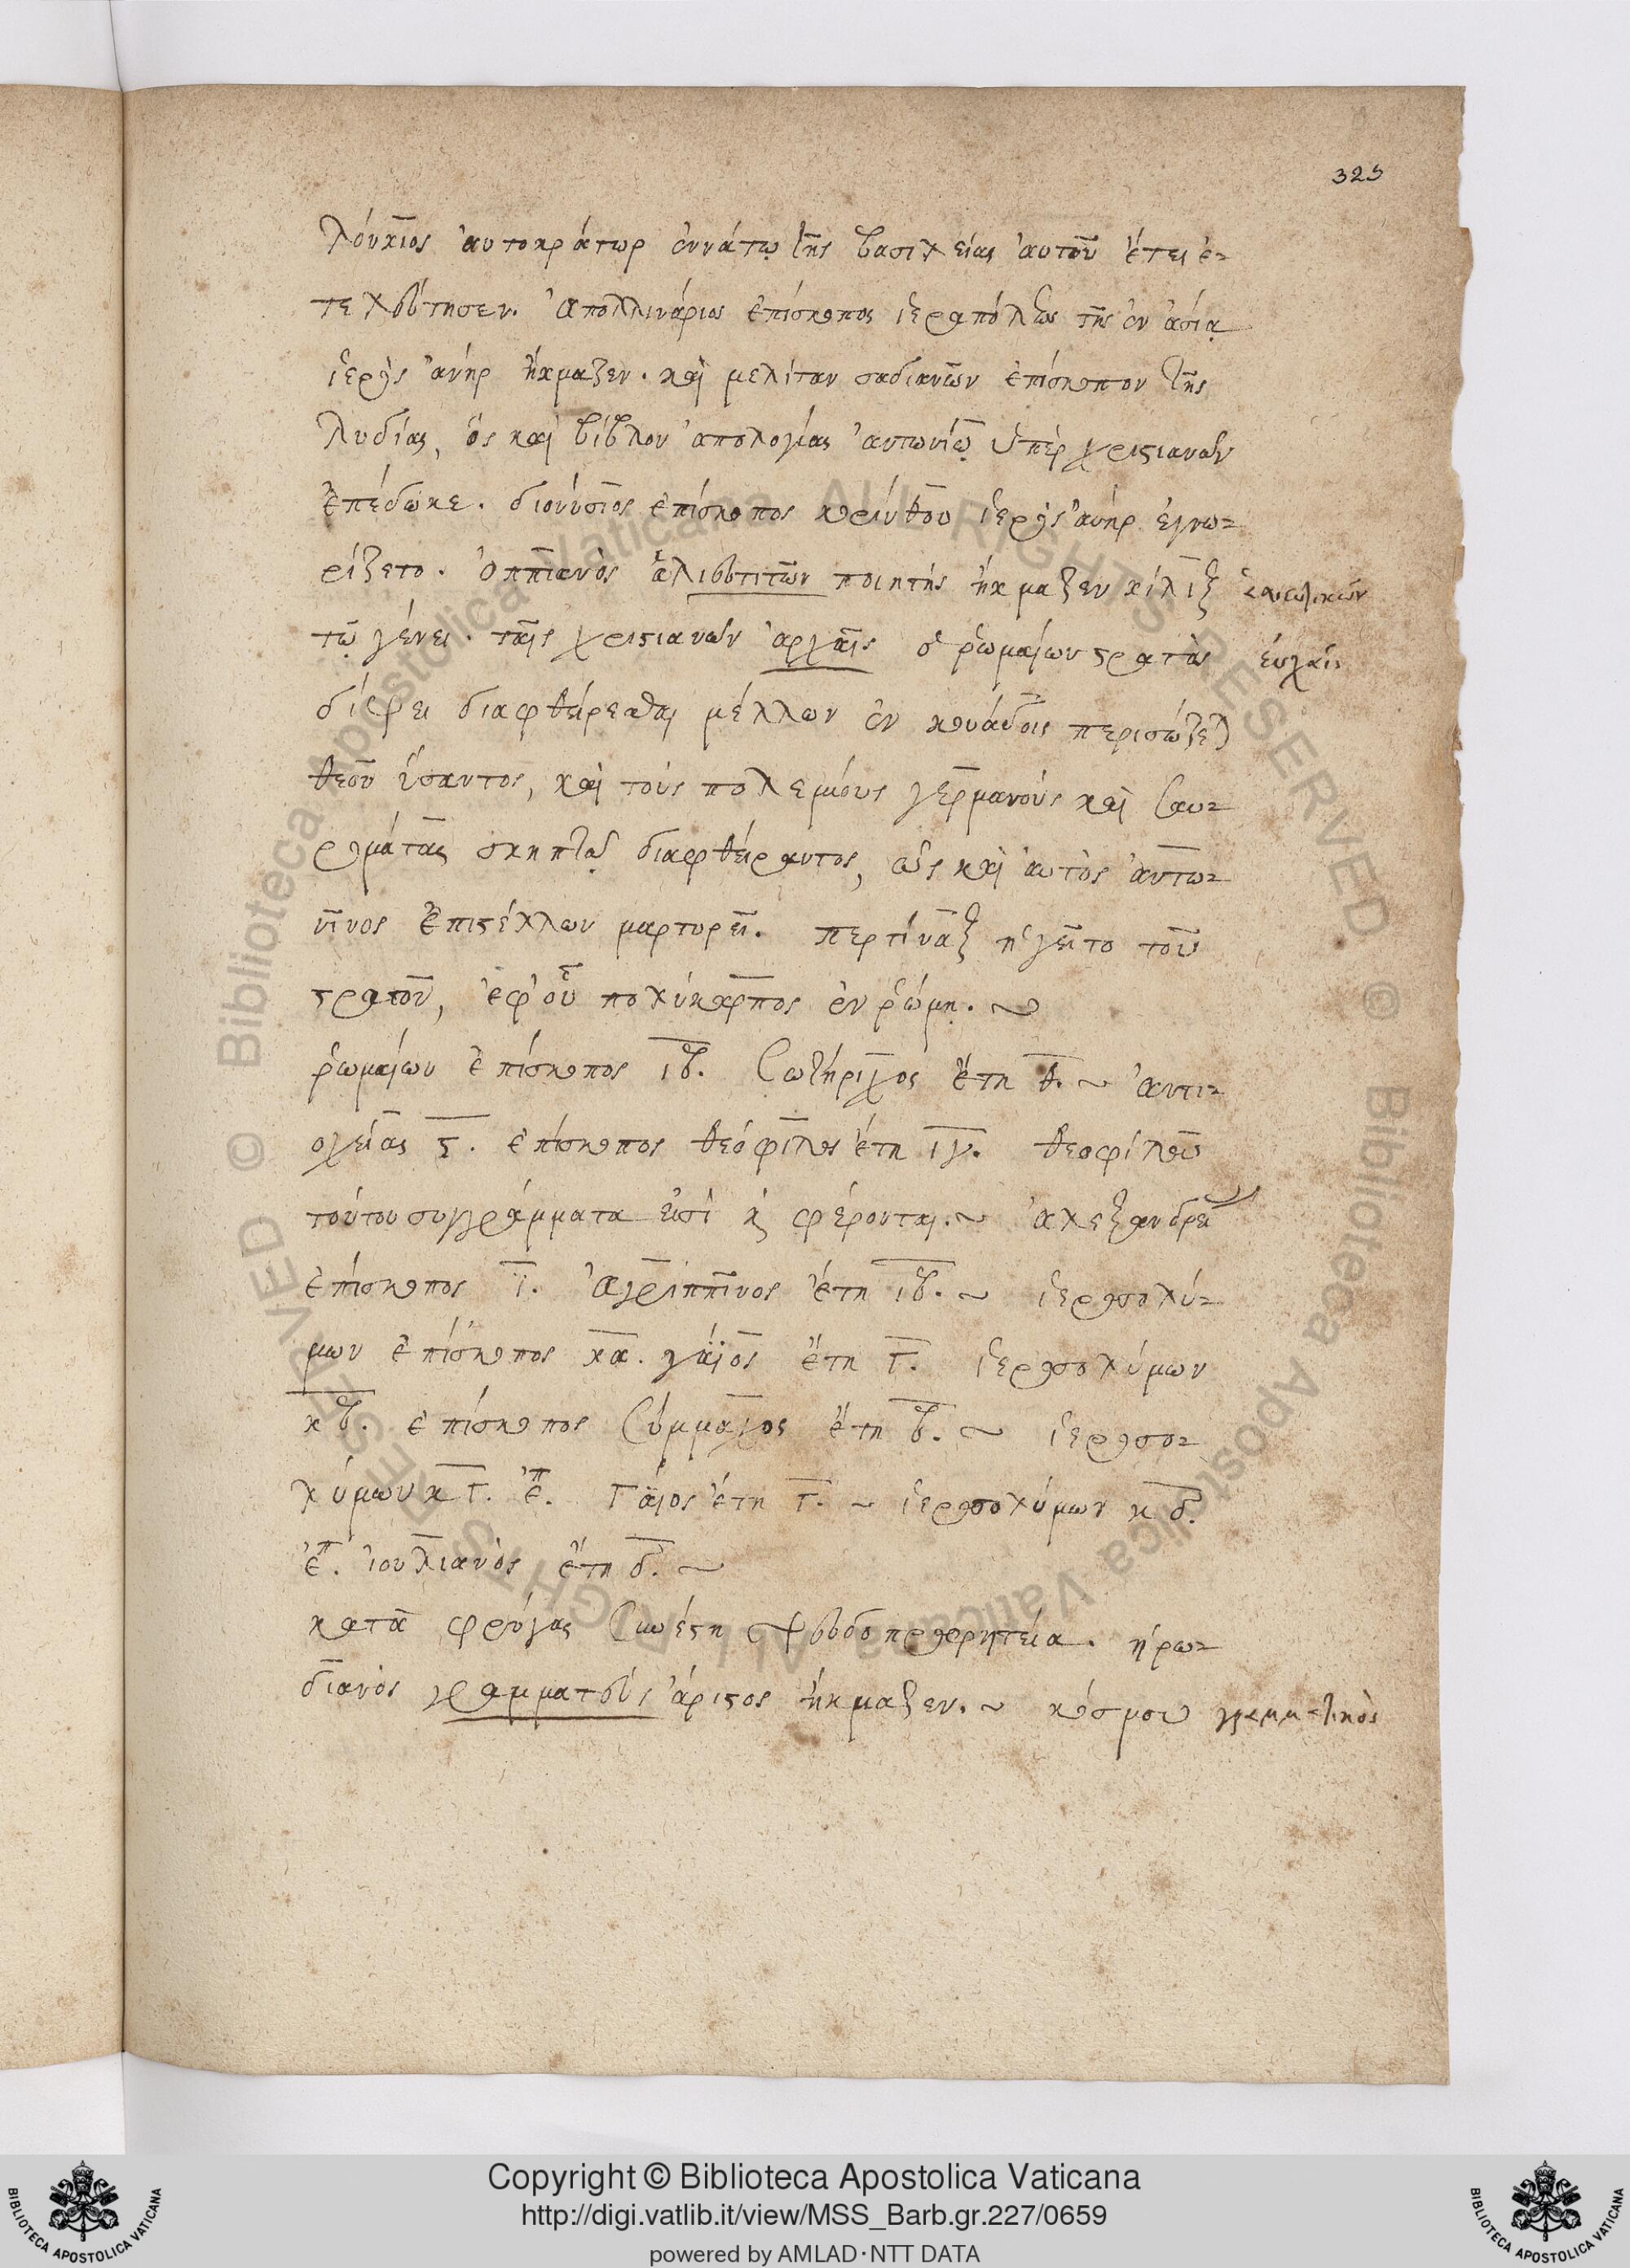 323
λούκιος αὐτοκράτωρ ἐννάτῳ τῆς βασιλείας αὐτοῦ ἔτει ἐ-
τελεύτησεν. Ἀπολλινάριος ἐπίσκοπος ἱεραπόλεως τῆς ἐν ἀσίᾳ
ἱερὸς ἀνήρ ἤκμαζεν. καὶ μελίταν σαδιανῶν ἐπίσκοπον τῆς
λυδίας, ὃς καὶ βίβλον ἀπολογίας ἀντωνίῳ ὑπὲρ χριστιανῶν
ἐπέδωκε. διονύσιος ἐπίσκοπος κορίνθου ἱερὸς ἀνήρ ἐγνω-
ρίζετο. Ὀππιανὸς ἁλιευτιτῶν ποιητής ἤκμαζεν κίλιξ
τῷ γένει. ταῖς χριστιανῶν ἀρχαῖς ὁ ῥωμαίων στρατὸς εὐχαῖς
δίψει διαφθείρεσθαι μέλλων ἐν κουάδοις περισώζεται
θεοῦ ὕσαντος, καὶ τοὺς πολεμίους γερμανούς καὶ σαυ-
ρομάτας σκηπτοῖς διαφθείραντος, ὡς καὶ αὐτὸς ἀντω-
νῖνος ἐπιστέλλων μαρτυρεῖ. περτίναξ ἡγεῖτο τοῦ
στρατοῦ, ἐφ' οὗ πολύκαρπος ἐν ῥώμῃ. ~
ῥωμαίων ἐπίσκοπος ιβ. Σωτήριχος ἔτη θ. ~ ἀντι-
οχείας ς. ἐπίσκοπος θεόφιλος ἔτη ιγ. θεοφίλου
τούτου συγγράμματα εἰσὶ κ φέρονται. ~ ἀλεξανδρεί
ἐπίσκοπος ι. Ἀγριππῖνος ἔτη ιβ. ~ ἱεροσολύ-
μων ἐπίσκοπος κα. γάϊος ἔτη γ. ἱεροσολύμων
κβ. ἐπίσκοπος Σύμμαχος ἔτη β. ~ ἱεροσο-
λύμων κγ. ἐπ. Γάϊος ἔτη γ. ~ ἱεροσολύμων κδ.
ἐπ. ἰουλιανὸς ἔτη δ. ~
κατὰ φρύγας συνέστη ψευδοπροφητεία. ἡρω-
διανὸς γραμματεὺς ἄριστος ἤκμαζεν. ~ κόσμου γραμματικὸς
Copyright © Biblioteca Apostolica Vaticana
http://digi.vatlib.it/view/MSS_Barb.gr.227/0659
powered by AMLAD·NTT DATA